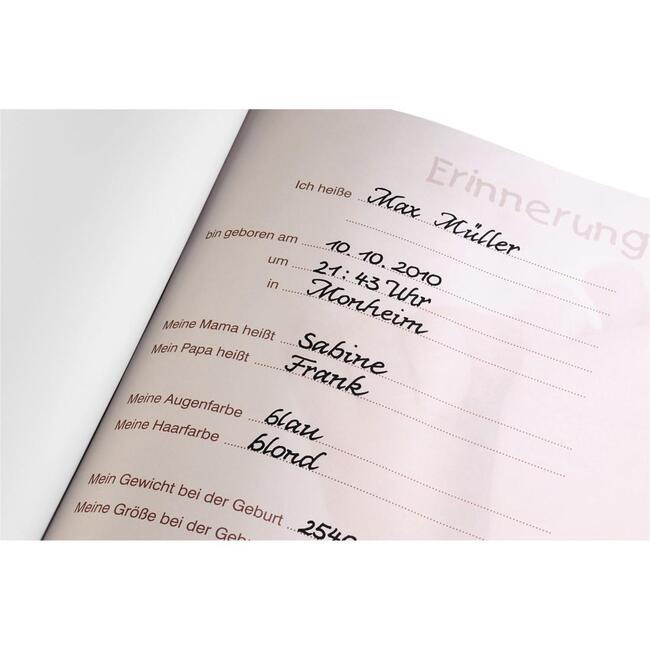 Erinnerung
Ich heiße Max Müller
bin geboren am 10.10.2010
um 21:43 Uhr
in Monheim
Meine Mama heißt Sabine
Mein Papa heißt Frank
Meine Augenfarbe blau
Meine Haarfarbe blond
Mein Gewicht bei der Geburt 2540
Meine Größe bei der